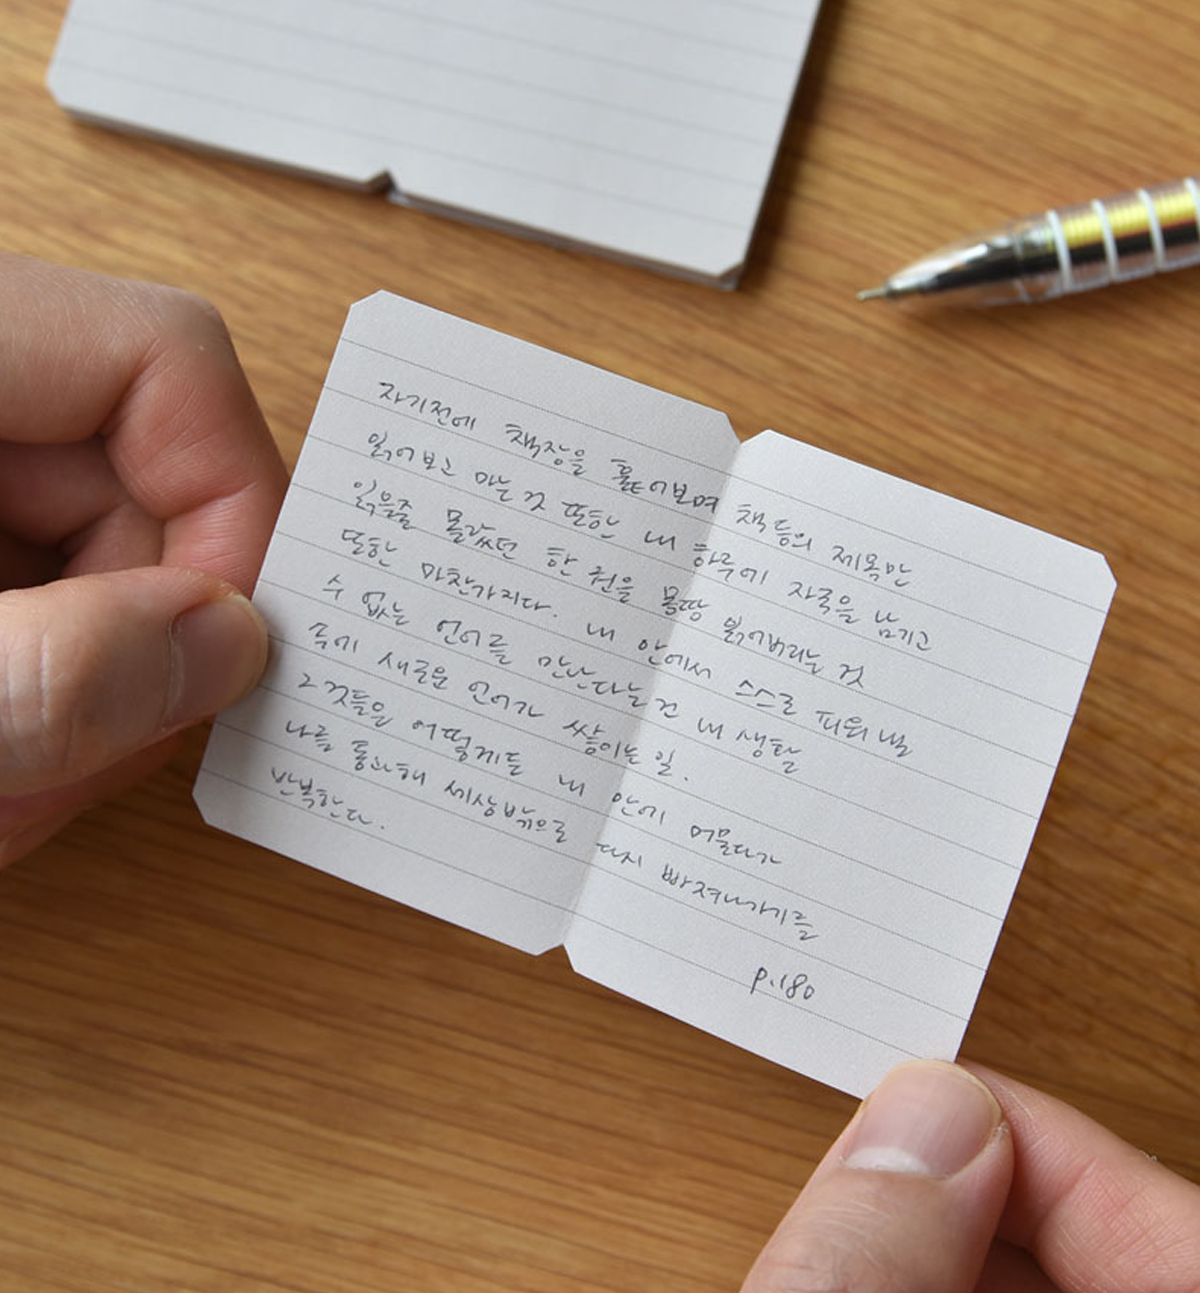 자기전에 책장을 훑어보며 책등의 제목만
읽어보고 마는 것 또한 내 하루에 자국을 남기고
읽을줄 몰랐던 한 권을 몽땅 읽어버리는 것
또한 마찬가지다. 내 안에서 스스로 피워낼
수 없는 언어를 만난다는 건 내 생활
속에 새로운 언어가 싹틈이는 일.
그것들은 어떻게든 내 안에 머물다가
나를 통과해 세상밖으로 다시 빠져나가기를
반복한다.
p.180